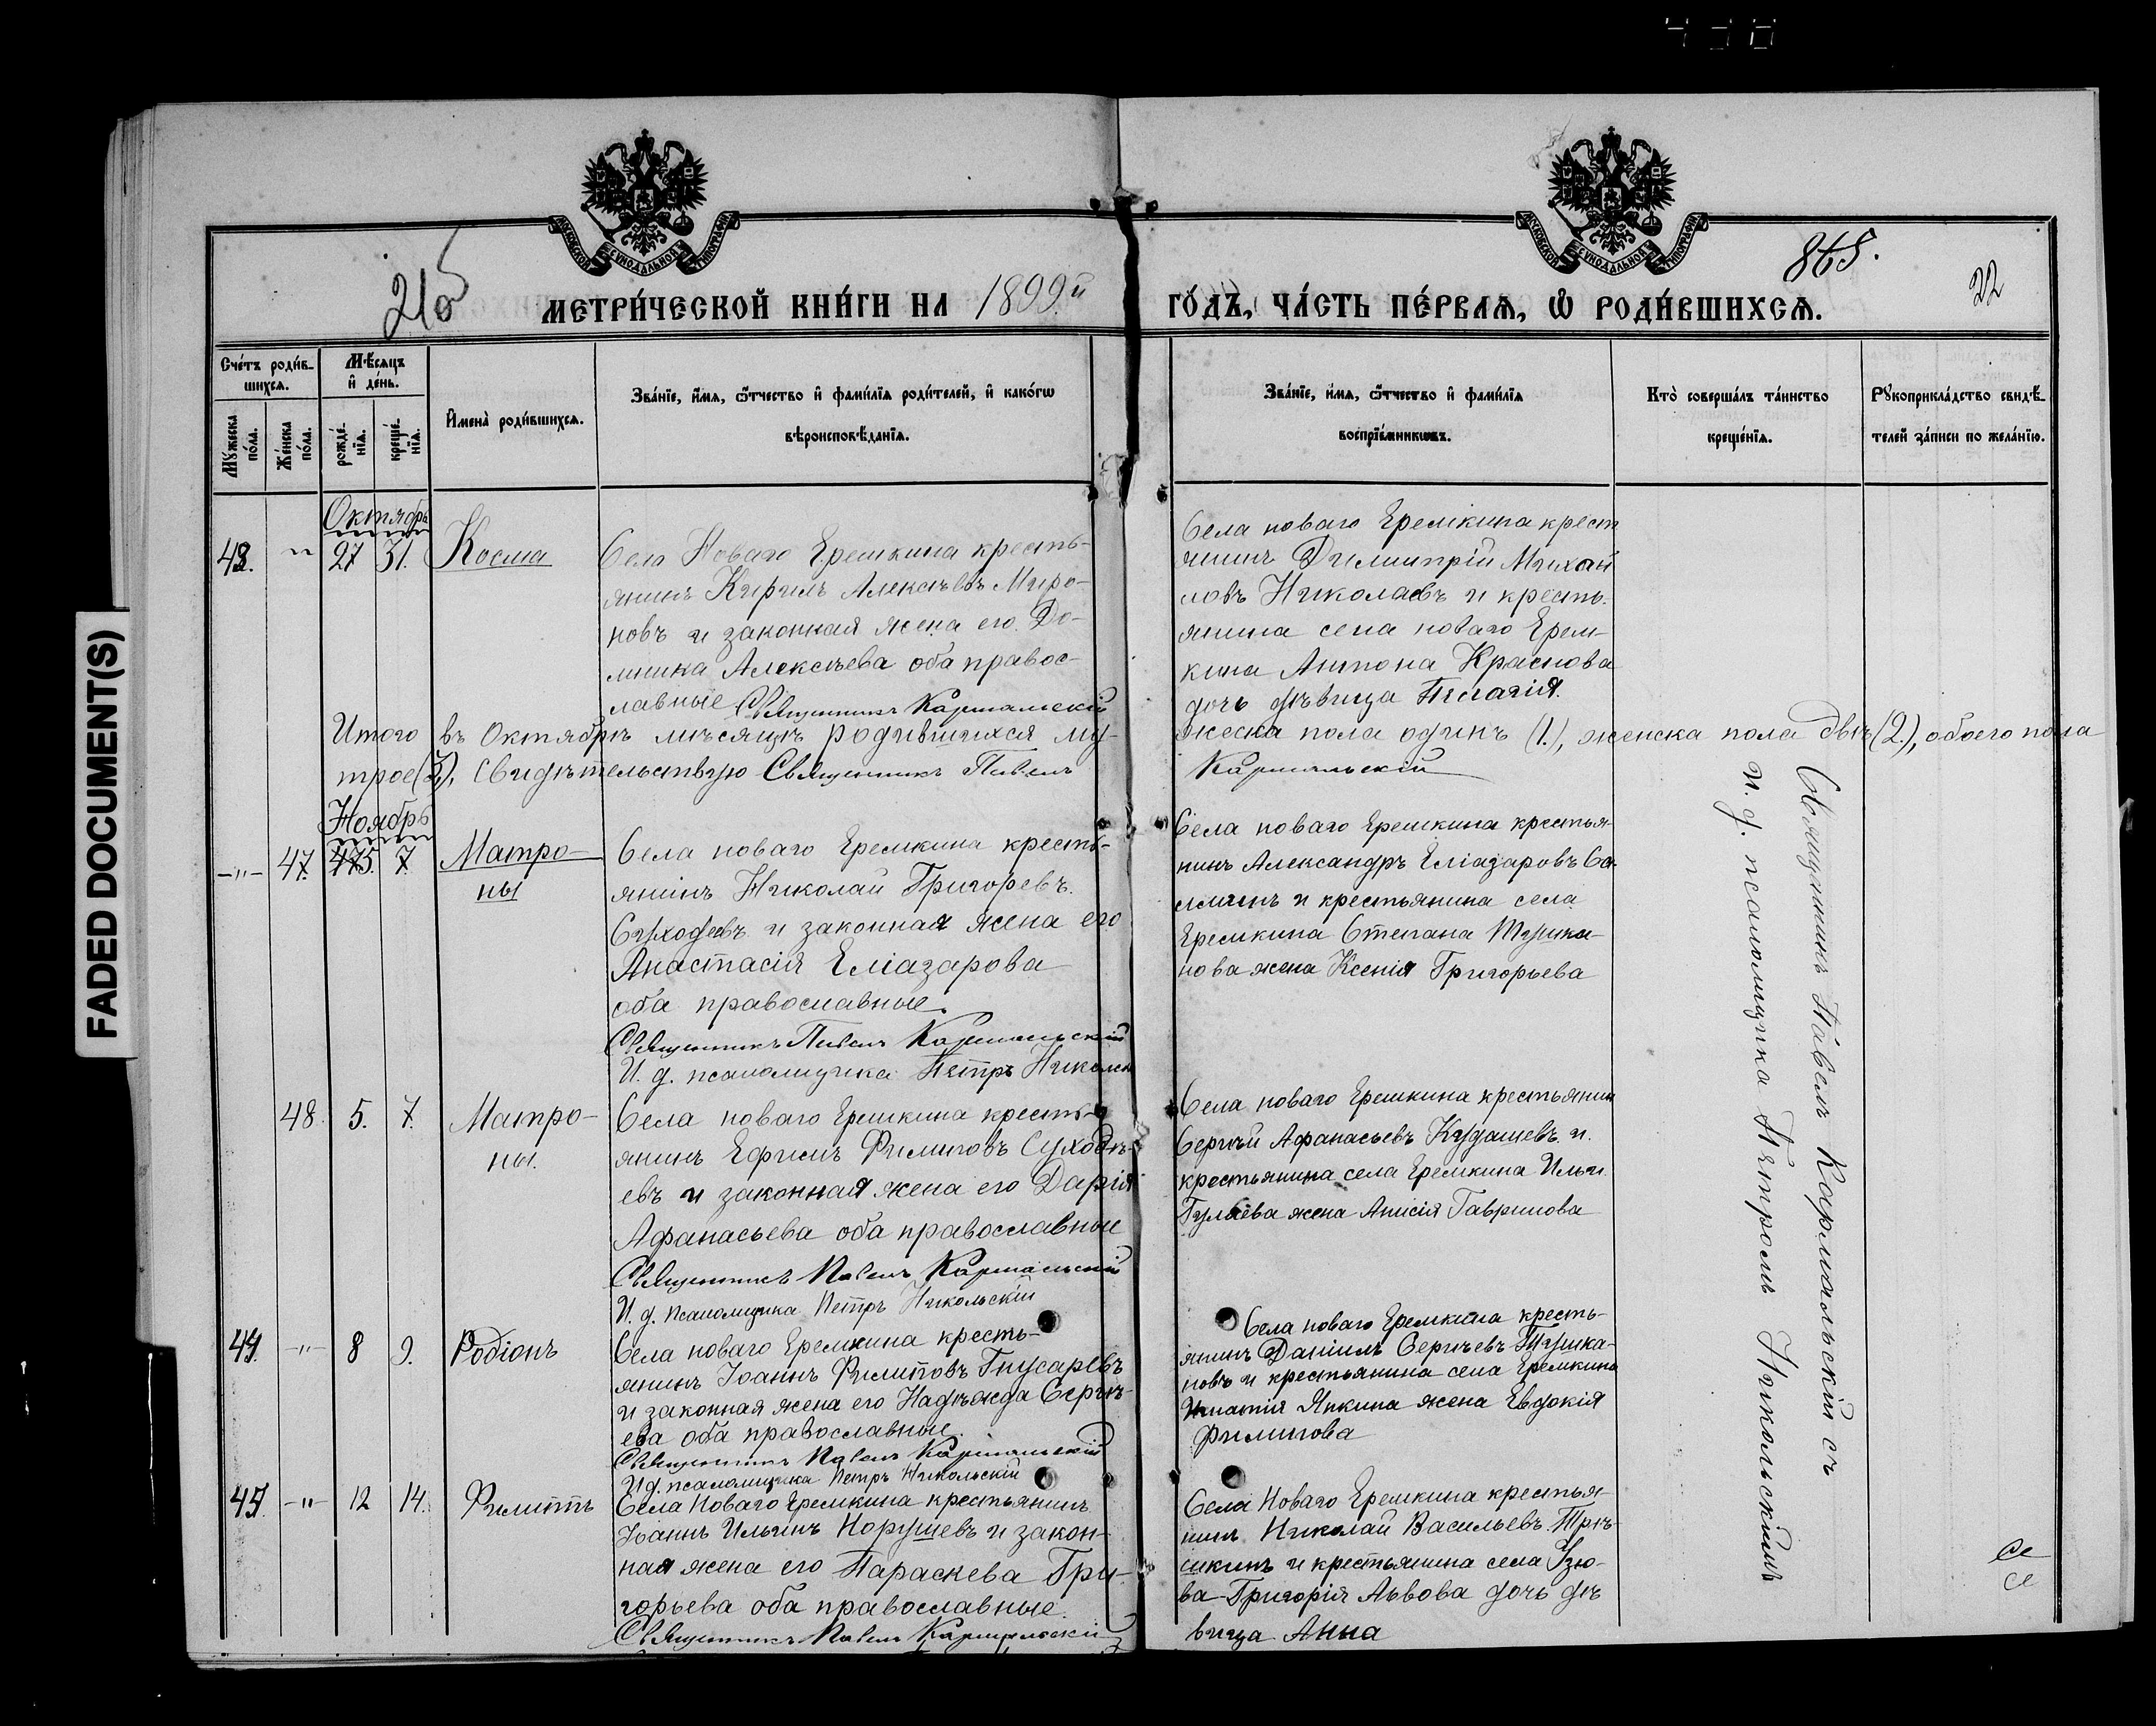 FADED DOCUMENT(S)
МОСКОВСКОЙ СѴНОДАЛЬНОЙ ТИПОГРАФІИ
МОСКОВСКОЙ СѴНОДАЛЬНОЙ ТИПОГРАФІИ
865.
22
МЕТРИ́ЧЕСКОЙ КНИ́ГИ НА 1899й
ГО́ДЪ, ЧА́СТЬ ПЕ́РВАѦ, Ѡ҆ РОДИ́ВШИХСѦ.
Сче́тъ роди́в-
шихсѧ.
Мꙋ́жеска
по́ла.
Же́нска
по́ла.
Мѣ́сѧцъ
и҆ де́нь.
рожде́-
нїѧ.
креще́-
нїѧ.
И҆мена̀ роди́вшихсѧ.
Зва́нїе, и҆́мѧ, ѻ҆́тчество и҆ фами́лїѧ роди́телей, и҆ како́гѡ
вѣроисповѣ́данїѧ.
Зва́нїе, и҆́мѧ, ѻ҆́тчество и҆ фами́лїѧ
воспрїе́мникѡвъ.
Кто̀ соверша́лъ та́инство
креще́нїѧ.
Рꙋкоприкла́дство свидѣ́-
телей за́писи по жела́нїю.
Октябрь
43. " 27 31. Косма
Села Новаго Еремкина кресть-
янинъ Кирилъ Алексѣевъ Миро-
новъ и законная жена его До-
мника Алексѣева оба правос-
лавные Священникъ Кармальскій
Села новаго Еремкина крест
янинъ Димитрій Михай
ловъ Николаевъ и кресть-
янина села новаго Ерем-
кина Антона Краснова
дочь дѣвица Пелагія.
Итого въ Октябрѣ мѣсяцѣ родившихся му-
жеска пола одинъ (1.), женска пола двѣ (2.), обоего пола
трое (3), Свидѣтельствую Священникъ Павелъ
Кармальскій
Ноябрь
-"- 47. 5. 7. Матро-
ны
Села новаго Еремкина кресть-
янинъ Николай Григорьевъ.
Суходеевъ и законная жена его
Анастасія Еліазарова
оба православные.
Священникъ Павелъ Кармальскій
И. д. псаломщика Петръ Никольск
Села новаго Еремкина крестья-
нинъ Александръ Еліазаровъ Са-
и крестьянина села
Еремкина Степана Тушка-
нова жена Ксенія Григорьева
48. 5. 7. Матро-
ны.
Села новаго Еремкина кресть-
янинъ Ефимъ Филиповъ Суходѣ-
евъ и законная жена его Дарія
Афанасьева оба православные
Священникъ Павелъ Кармальскій
И. д. псаломщика Петръ Никольскій
Села новаго Еремкина крестьянин
Сергѣй Афанасьевъ Кудашевъ и.
крестьянина села Еремкина Ильи
Гуляева жена Анисія Гаврилова
44. -"- 8 9. Родіонъ
Села новаго Еремкина кресть-
янинъ Іоаннъ Филиповъ Гнусаревъ
и законная жена его Надѣжда Сергѣ-
ева оба православные.
Священникъ Павелъ Кармальскій
И д. псаломщика Петръ Никольскій
Села новаго Еремкина кресть-
янинъ Даніилъ Сергѣевъ Тушка-
новъ и крестьянина села Еремкина
Игнатія Япкина жена Евдокія
Филипова
45. -"- 12 14. Филиппъ
Села Новаго Еремкина крестьянинъ
Іоаннъ Ильинъ Норушевъ и закон-
ная жена его Параскева Гри-
горьева оба православные.
Священникъ Павелъ Кармальскій
Села Новаго Еремкина крестья-
нинъ Николай Васильевъ Трѣ-
шкинъ и крестьянина села Узю-
ва Григорія Львова дочь дѣ
вица Анна
Священникъ Павелъ Кармальскій съ
и. д. псаломщика Петромъ Никольскимъ